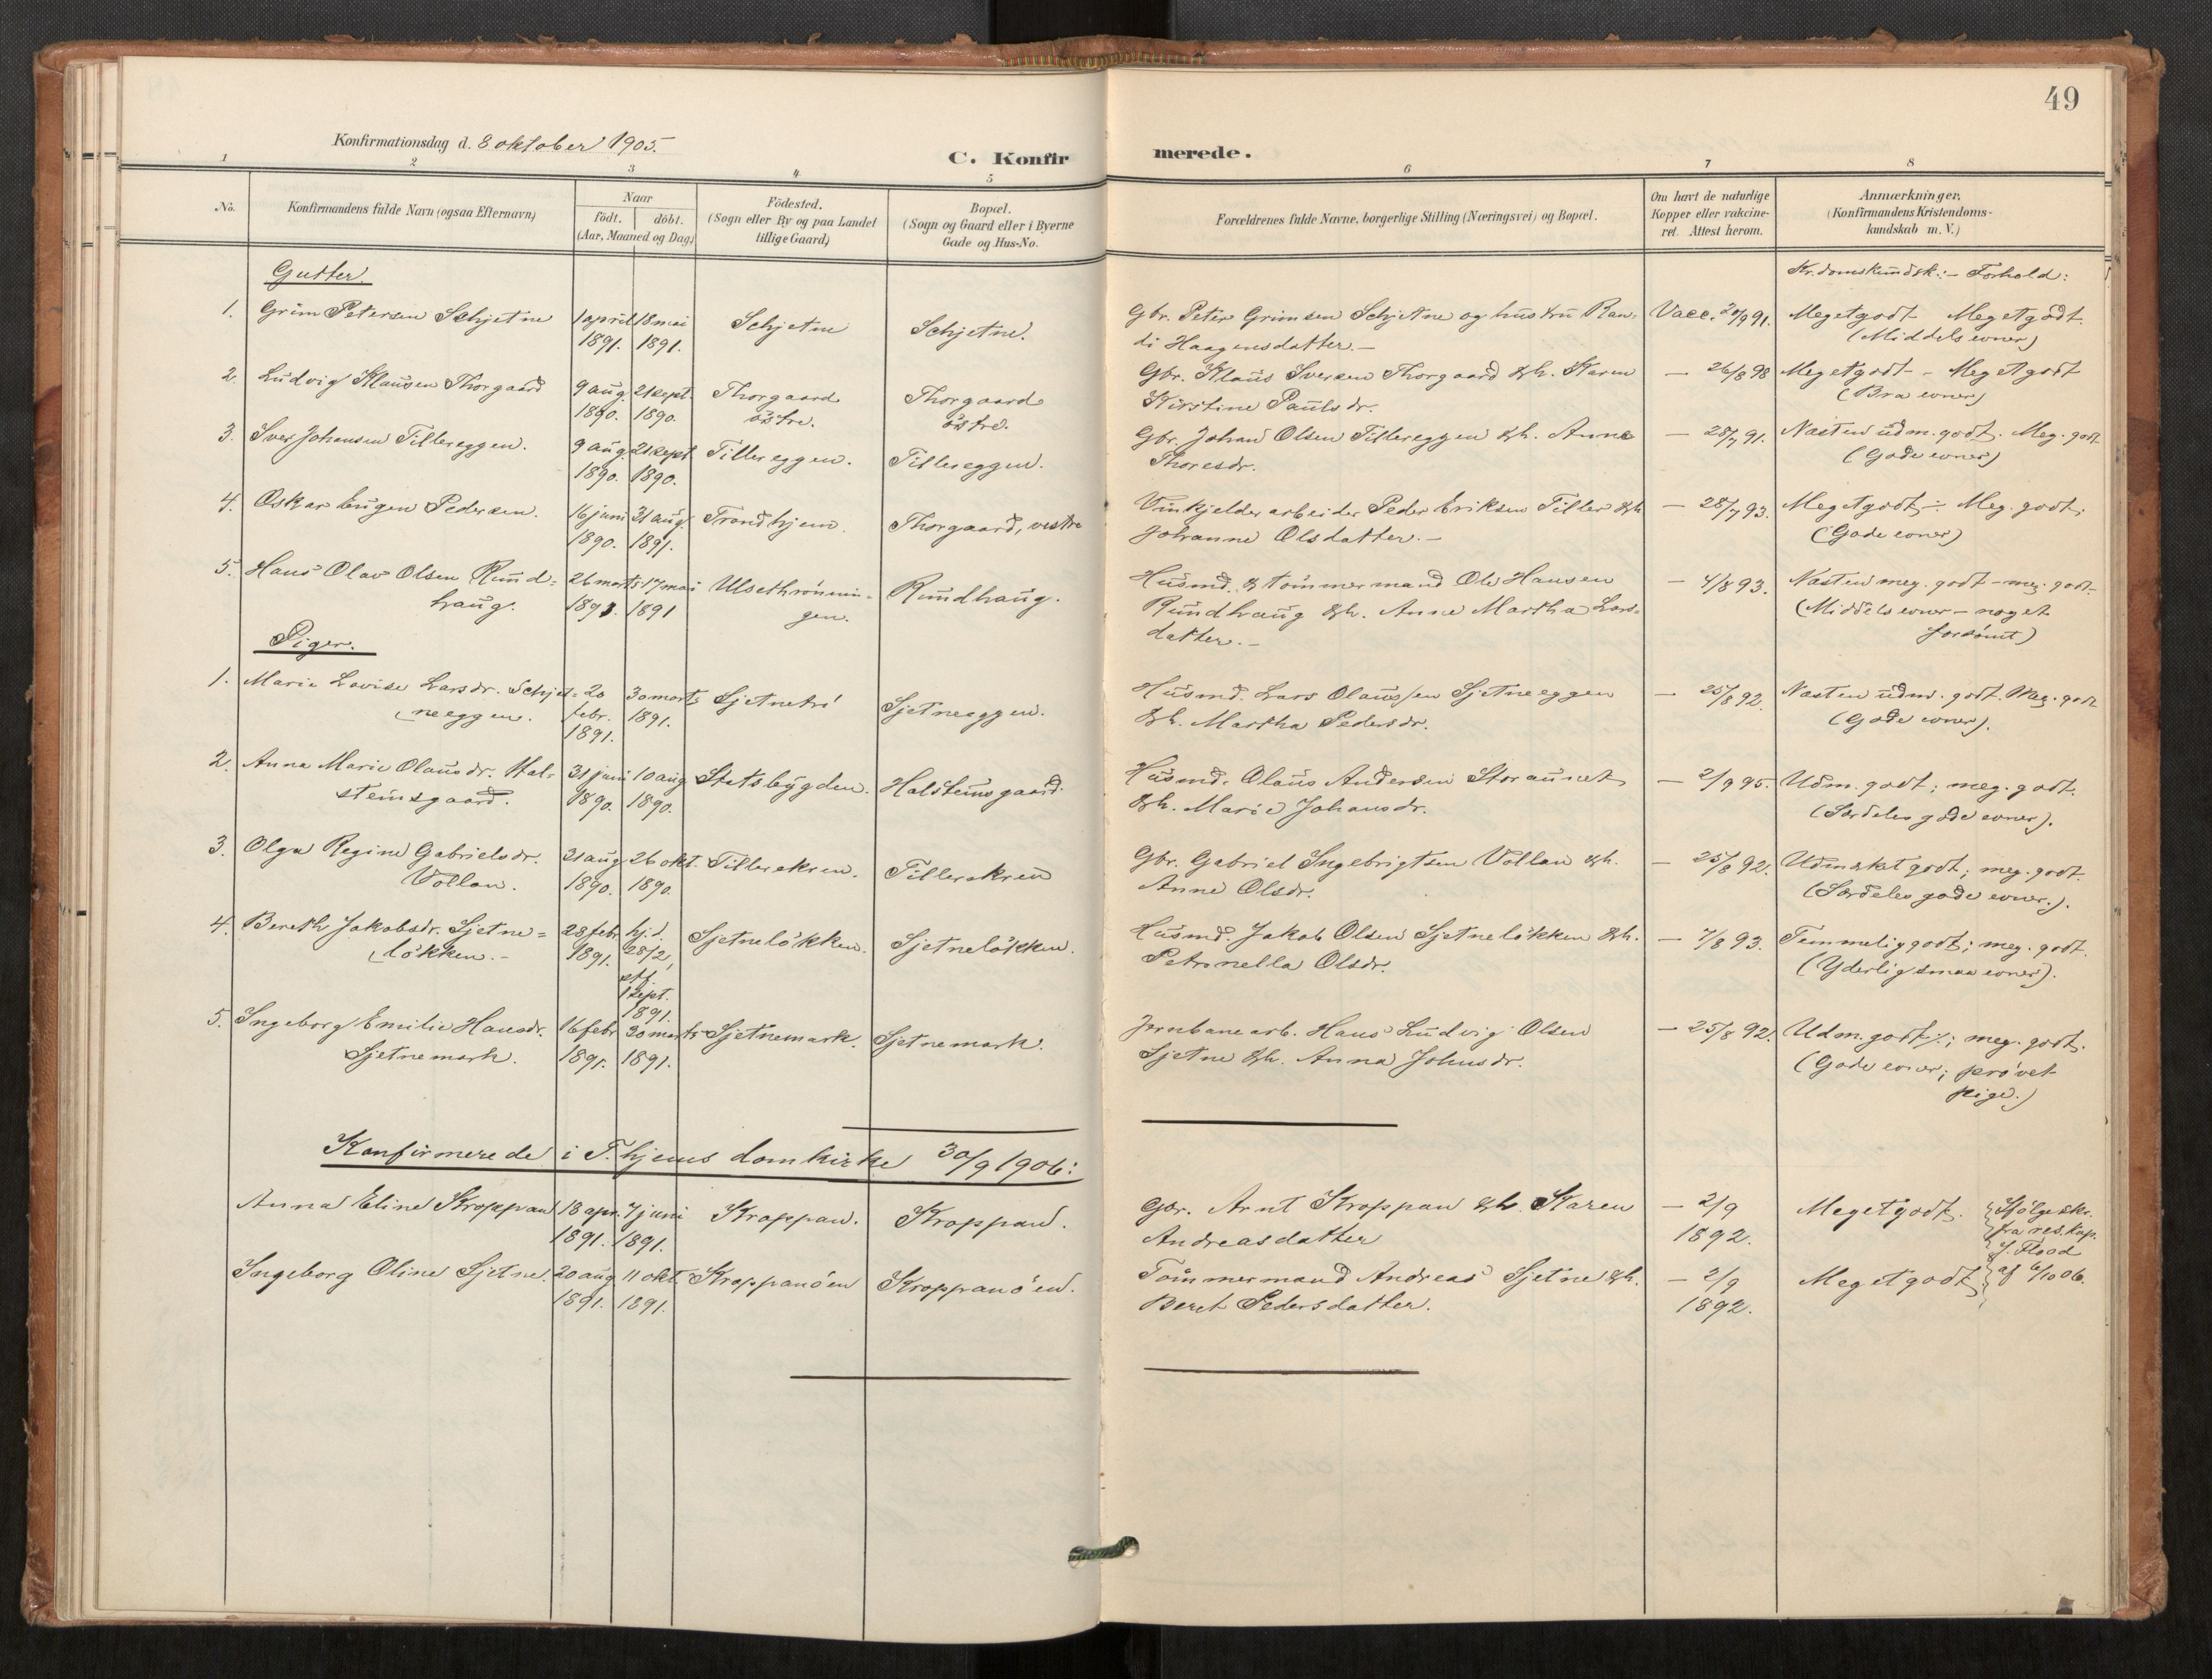 49
Konfirmationsdag d. 8 oktober 1905.
C. Konfirmerede.
1 2 3 4 5 6 7 8
No.
Konfirmandens fulde Navn (ogsaa Efternavn)
Naar
födt. döbt.
(Aar, Maaned og Dag)
Födested.
(Sogn eller By og paa Landet
tillige Gaard)
Bopæl.
(Sogn og Gaard eller i Byerne
Gade og Hus-No.
Forældrenes fulde Navne, borgerlige Stilling (Næringsvei) og Bopæl.
Om havt de naturlige
Kopper eller vakcine-
ret. Attest herom.
Anmærkninger.
(Konfirmandens Kristendoms-
kundskab m. V.)
Gutter.
Kr.domskundsk: - Forhold:
1. Grim Petersen Schjetne 1 april 18 mai Schjetne Schjetne. Gbr. Peter Grimsen Schjetne og hustru Ran- Vacc. 20/9 91. Megetgodt Megetgodt.
1891. 1891. di Haagensdatter.- (Middels evner)
2. Ludvig Klausen Thorgaard 9 aug. 21 sept. Thorgaard Thorgaard Gbr. Klaus Iversen Thorgaard & h. Karen - 26/8 98 Megetgodt - Megetgodt
1890. 1890. östre. östre. Kirstine Paulsdr. (Bra evner)
3. Iver Johansen Tillereggen. 9 aug. 21 sept Tillereggen. Tillereggen. Gbr. Johan Olsen Tillereggen & h. Anne - 28/7 91. Næsten udm. godt. Meg. godt
1890. 1890. Thoresdr. (Gode evner)
4. Oskar Eugen Pedersen. 16 juni 31 aug. Trondhjem. Thorgaard, vestre Vinkjelderarbeider Peder Eriksen Tiller & h - 28/7 93. Megetgodt ÷ Meg. godt.
1890. 1891. Johanne Olsdatter.- (Gode evner)
5. Hans Olav Olsen Rund= 26 marts 17 mai Ulsethrönnin- Rundhaug. Husmd. & tömmermand Ole Hansen - 4/8 93. Næsten meg. godt - meg. godt-
haug. 1891 gen. Rundhaug & h. Anne Martha Lars= (Middels evner - noget
datter.- forsömt)
Piger.
1. Marie Lovise Larsdr. Schjet= 20 30 marts Sjetnetrö Sjetneeggen. Husmd. Lars Olaussen Sjetneeggen - 25/8 92. Næsten udm. godt. Meg. godt
neeggen. febr. 1891. & h. Martha Pedersdr. (Gode evner).
1891.
2. Anna Marie Olausdr. Hal= 31 juni 10 aug Statsbygden. Halsteinsgaard. Husmd. Olaus Andersen Storaunet - 2/9 95. Udm. godt; meg. godt.
steinsgaard. 1890. 1890. & h. Marie Johansdr. (Særdeles gode evner).
3. Olga Regine Gabrielsdr. 31 aug 26 okt. Tillerekren. Tillerekren Gbr. Gabriel Ingebrigtsen Vollan & h. - 25/8 92. Udmerket godt; meg. godt.
Vollan. 1890. 1890. Anne Olsdr. (Særdeles gode evner.).
4. Bereth Jakobsdr. Sjetne= 28 febr. hj.d. Sjetnelökken. Sjetnelökken. Husmd. Jakob Olsen Sjetnelökken & h. - 7/8 93. Temmelig godt; meg. godt.
lökken.- 1891. 28/2, Petronella Olsdr. (Yderlig smaa evner).
stf.
1 sept.
1891.
5. Ingeborg Emilie Hansdr. 16 febr 30 marts Sjetnemark. Sjetnemark. Jernbanearb. Hans Ludvig Olsen - 25/8 92. Udm. godt; meg. godt.
Sjetnemark. 1891. 1891. Sjetne & h. Anna Johnsdr. (Gode evner; prövet
pige.)
Konfirmerede i T.hjems domkirke 30/9 1906:
Anna Eline Kroppan 18 apr. 7 juni Kroppan. Kroppan. Gbr. Arnt Kroppan & h. Karen - 2/9 Megetgodt. Ifölge skr.
1891. 1891. Andreasdatter 1892. fra res. kap.
J. Flood
Ingeborg Oline Sjetne. 20 aug 11 okt. Kroppanöen Kroppanöen. Tömmermand Andreas Sjetne & h. - 2/9 Megetgodt af 6/10 06.
1891. 1891. Beret Pedersdatter. 1892.